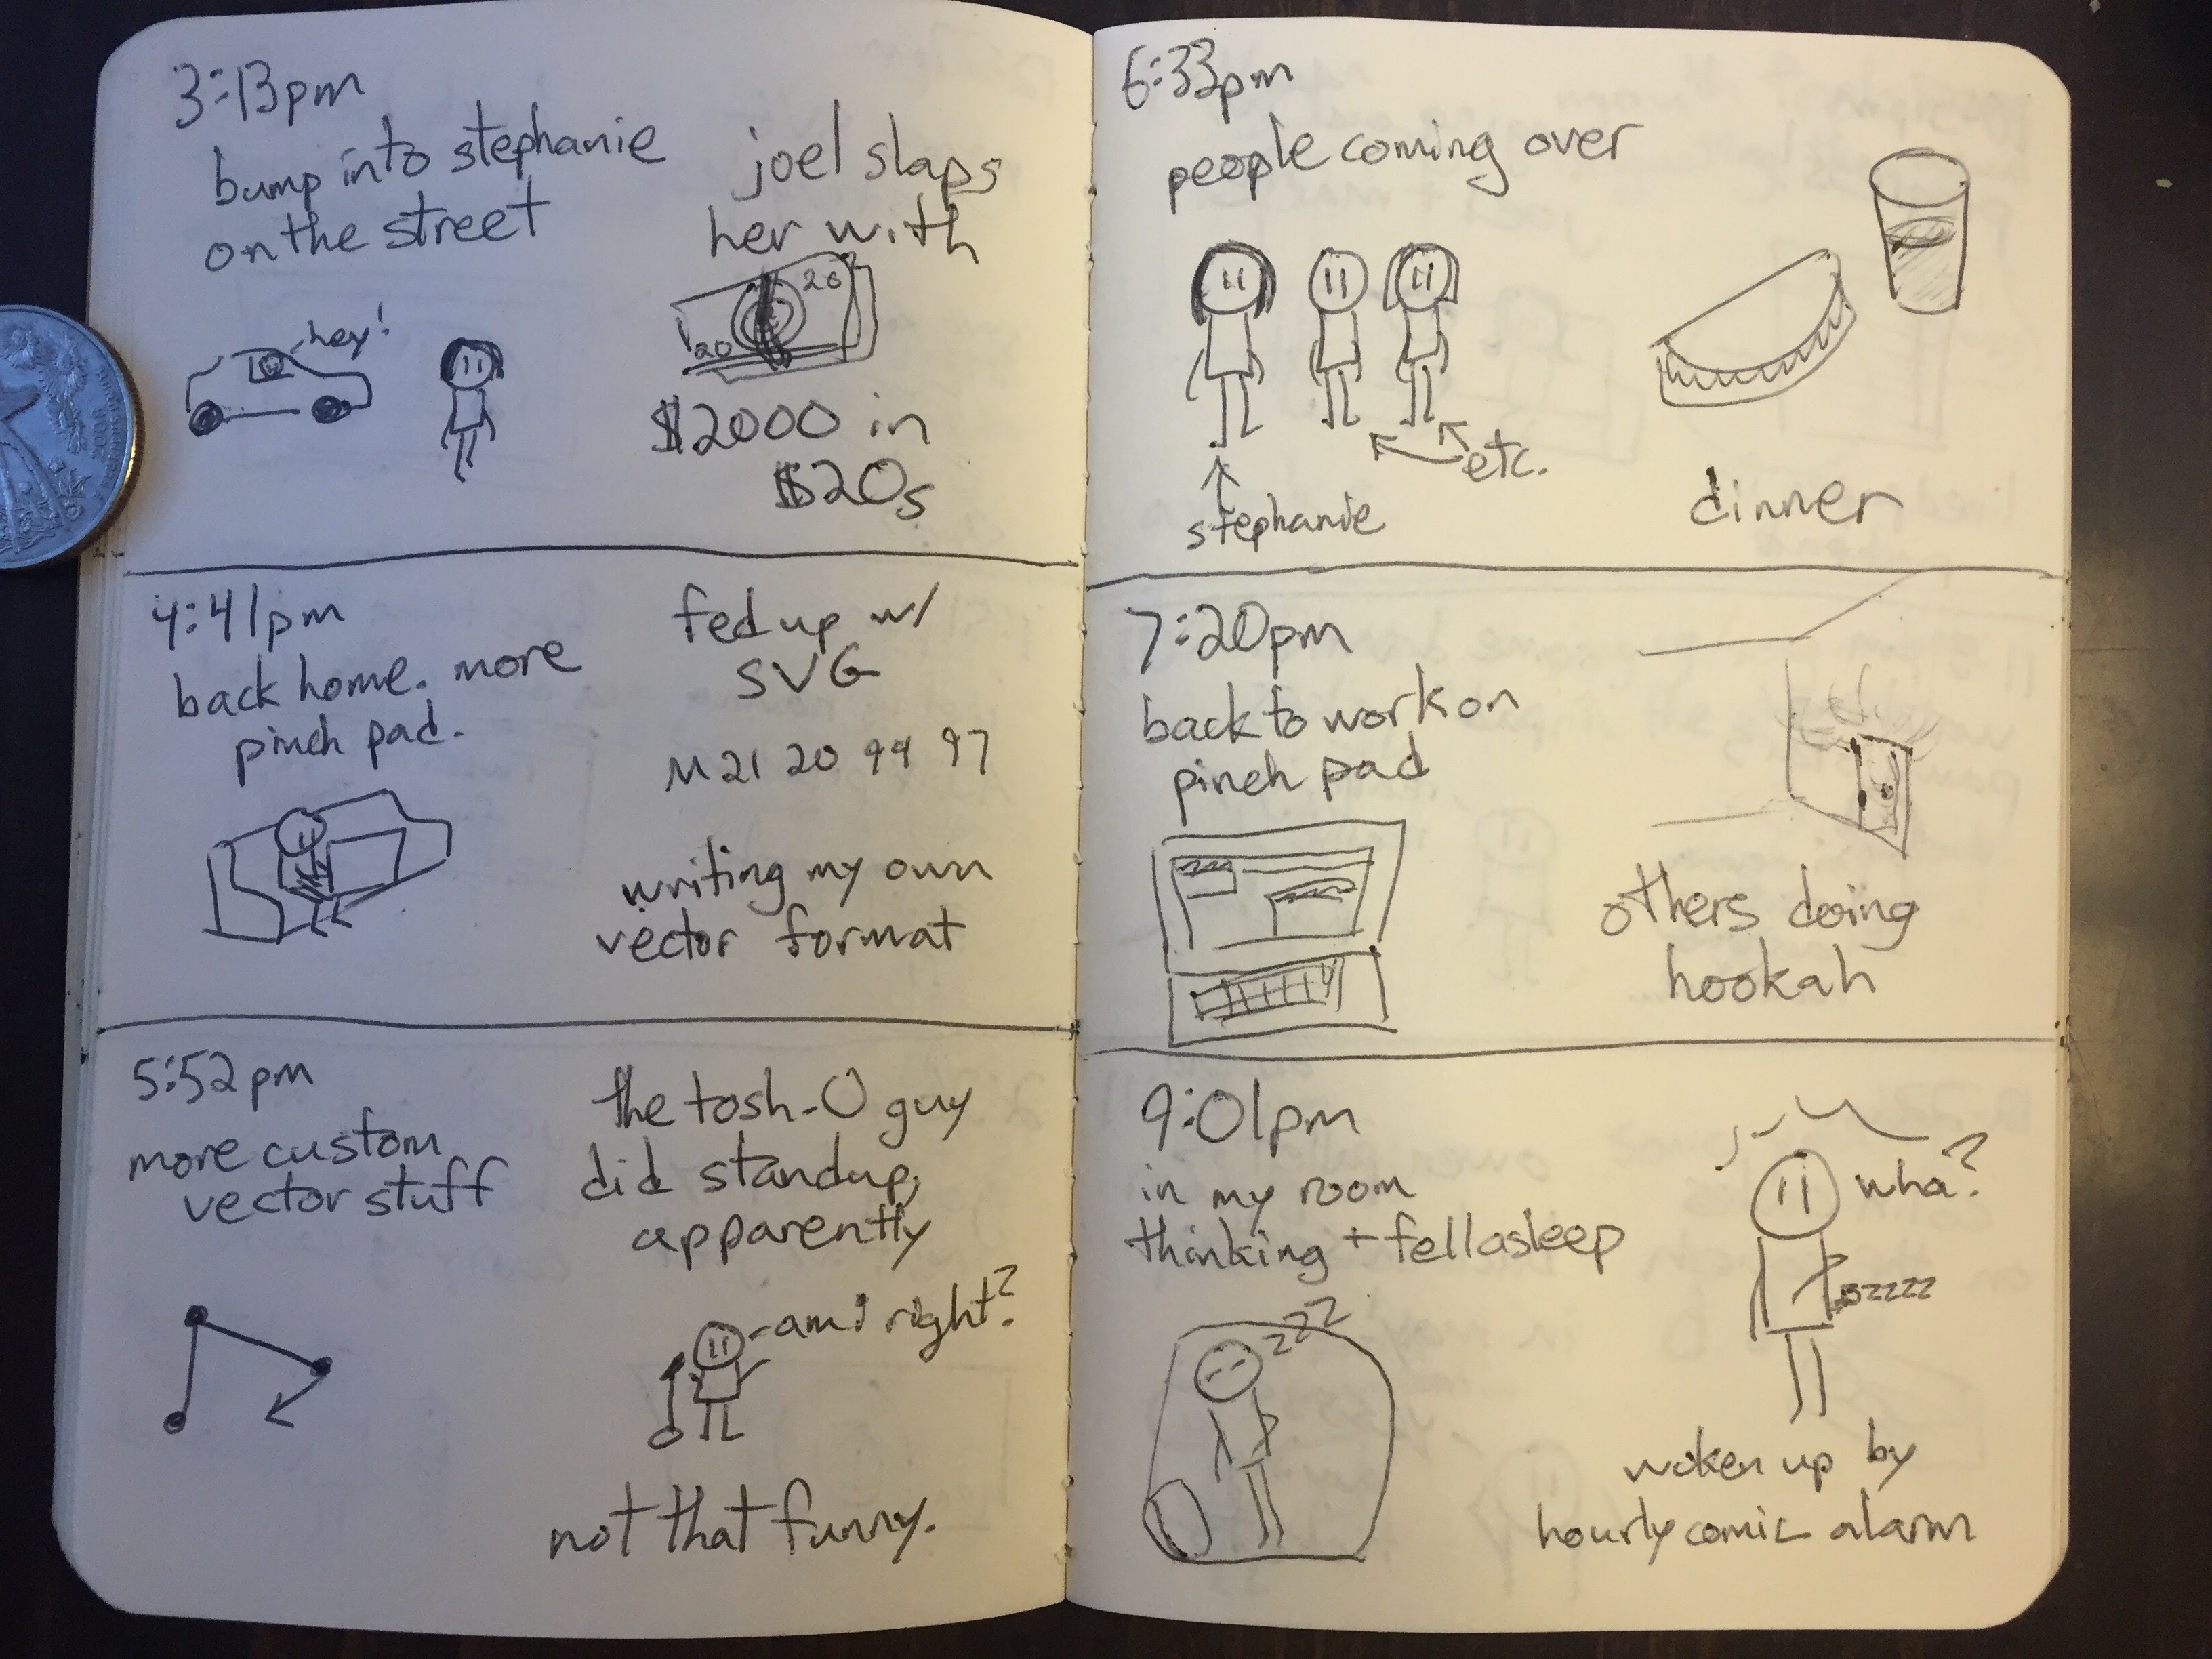 3:13pm
bump into stephanie
on the street
hey!
joel slaps
her with
20
20
$2000 in
$20s
4:41pm
back home. more
pinch pad.
fed up w/
SVG
M 21 20 94 97
writing my own
vector format
5:52pm
more custom
vector stuff
the tosh-O guy
did standup,
apparently
am i right?
not that funny.
6:33pm
people coming over
etc.
stephanie
dinner
7:20pm
back to work on
pinch pad
others doing
hookah
9:01pm
in my room
thinking + fell asleep
zzz
wha?
zzzzz
woken up by
hourly comic alarm